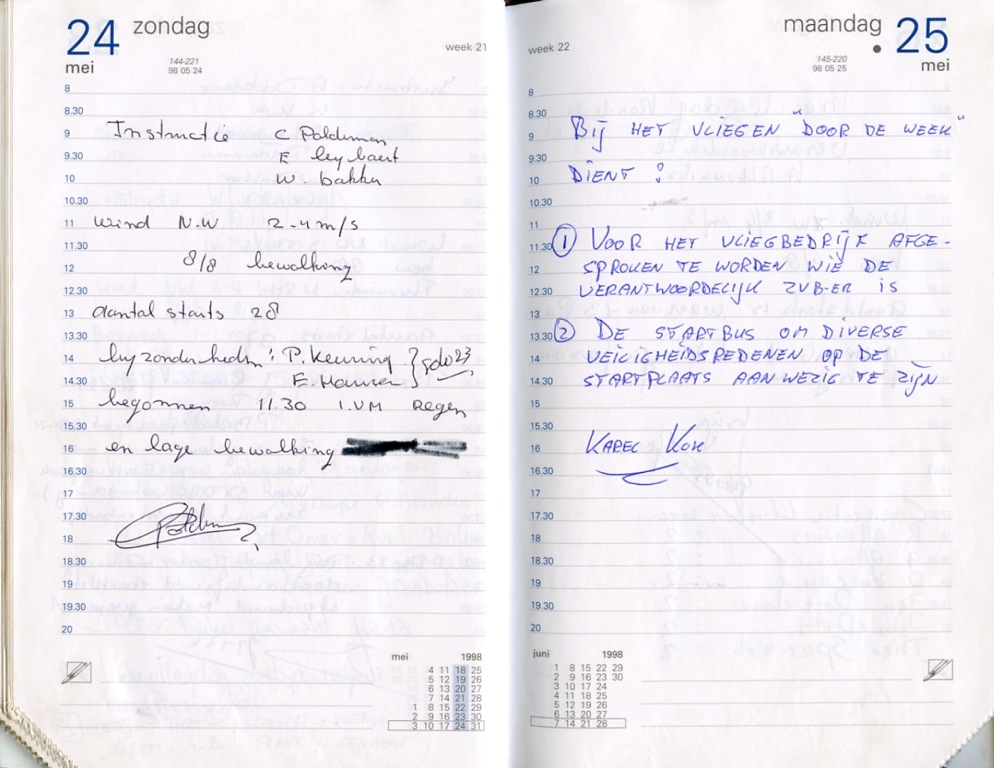 24 zondag
mei
144-221
98 05 24
week 21
8
8.30
9 Instructie C. Polderman
9.30 E leybaert
10 W. bakker
10.30
11 wind N.W 2-4 m/s
11.30
12 8/8 bewolking
12.30
13 aantal starts 28
13.30
14 byzonderheden: P. Keuning } solo 23
14.30 E.
15 begonnen 11.30 I.VM Regen
15.30
16 en lage bewolking
16.30
17
17.30
18
18.30
19
19.30
20
mei 1998
4 11 18 25
5 12 19 26
6 13 20 27
7 14 21 28
1 8 15 22 29
2 9 16 23 30
3 10 17 24 31
maandag 25
mei
week 22
145-220
98 05 25
8
8.30
9 BIJ HET VLIEGEN "DOOR DE WEEK"
9.30
10 DIENT :
10.30
11
11.30 ① VOOR HET VLIEGBEDRIJF AFGE-
12 SPROKEN TE WORDEN WIE DE
12.30 VERANTWOORDELIJK ZVB-ER IS
13
13.30 ② DE STARTBUS OM DIVERSE
14 VEILIGHEIDSREDENEN OP DE
14.30 STARTPLAATS AANWEZIG TE ZIJN
15
15.30
16 KAREL KOK
16.30
17
17.30
18
18.30
19
19.30
20
juni 1998
1 8 15 22 29
2 9 16 23 30
3 10 17 24
4 11 18 25
5 12 19 26
6 13 20 27
7 14 21 28